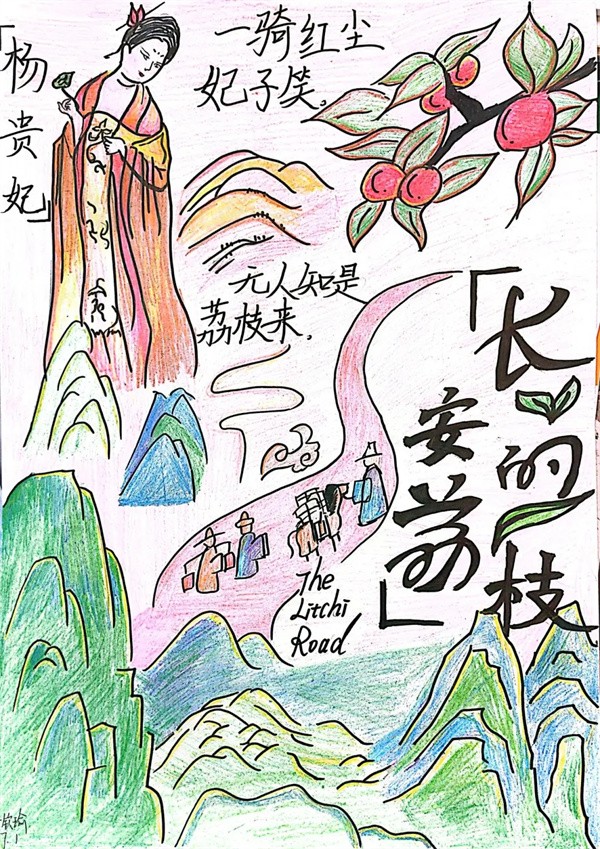 「杨贵妃」
一骑红尘
妃子笑。
无人知是
荔枝来。
「长安的荔枝」
The
Litchi
Road